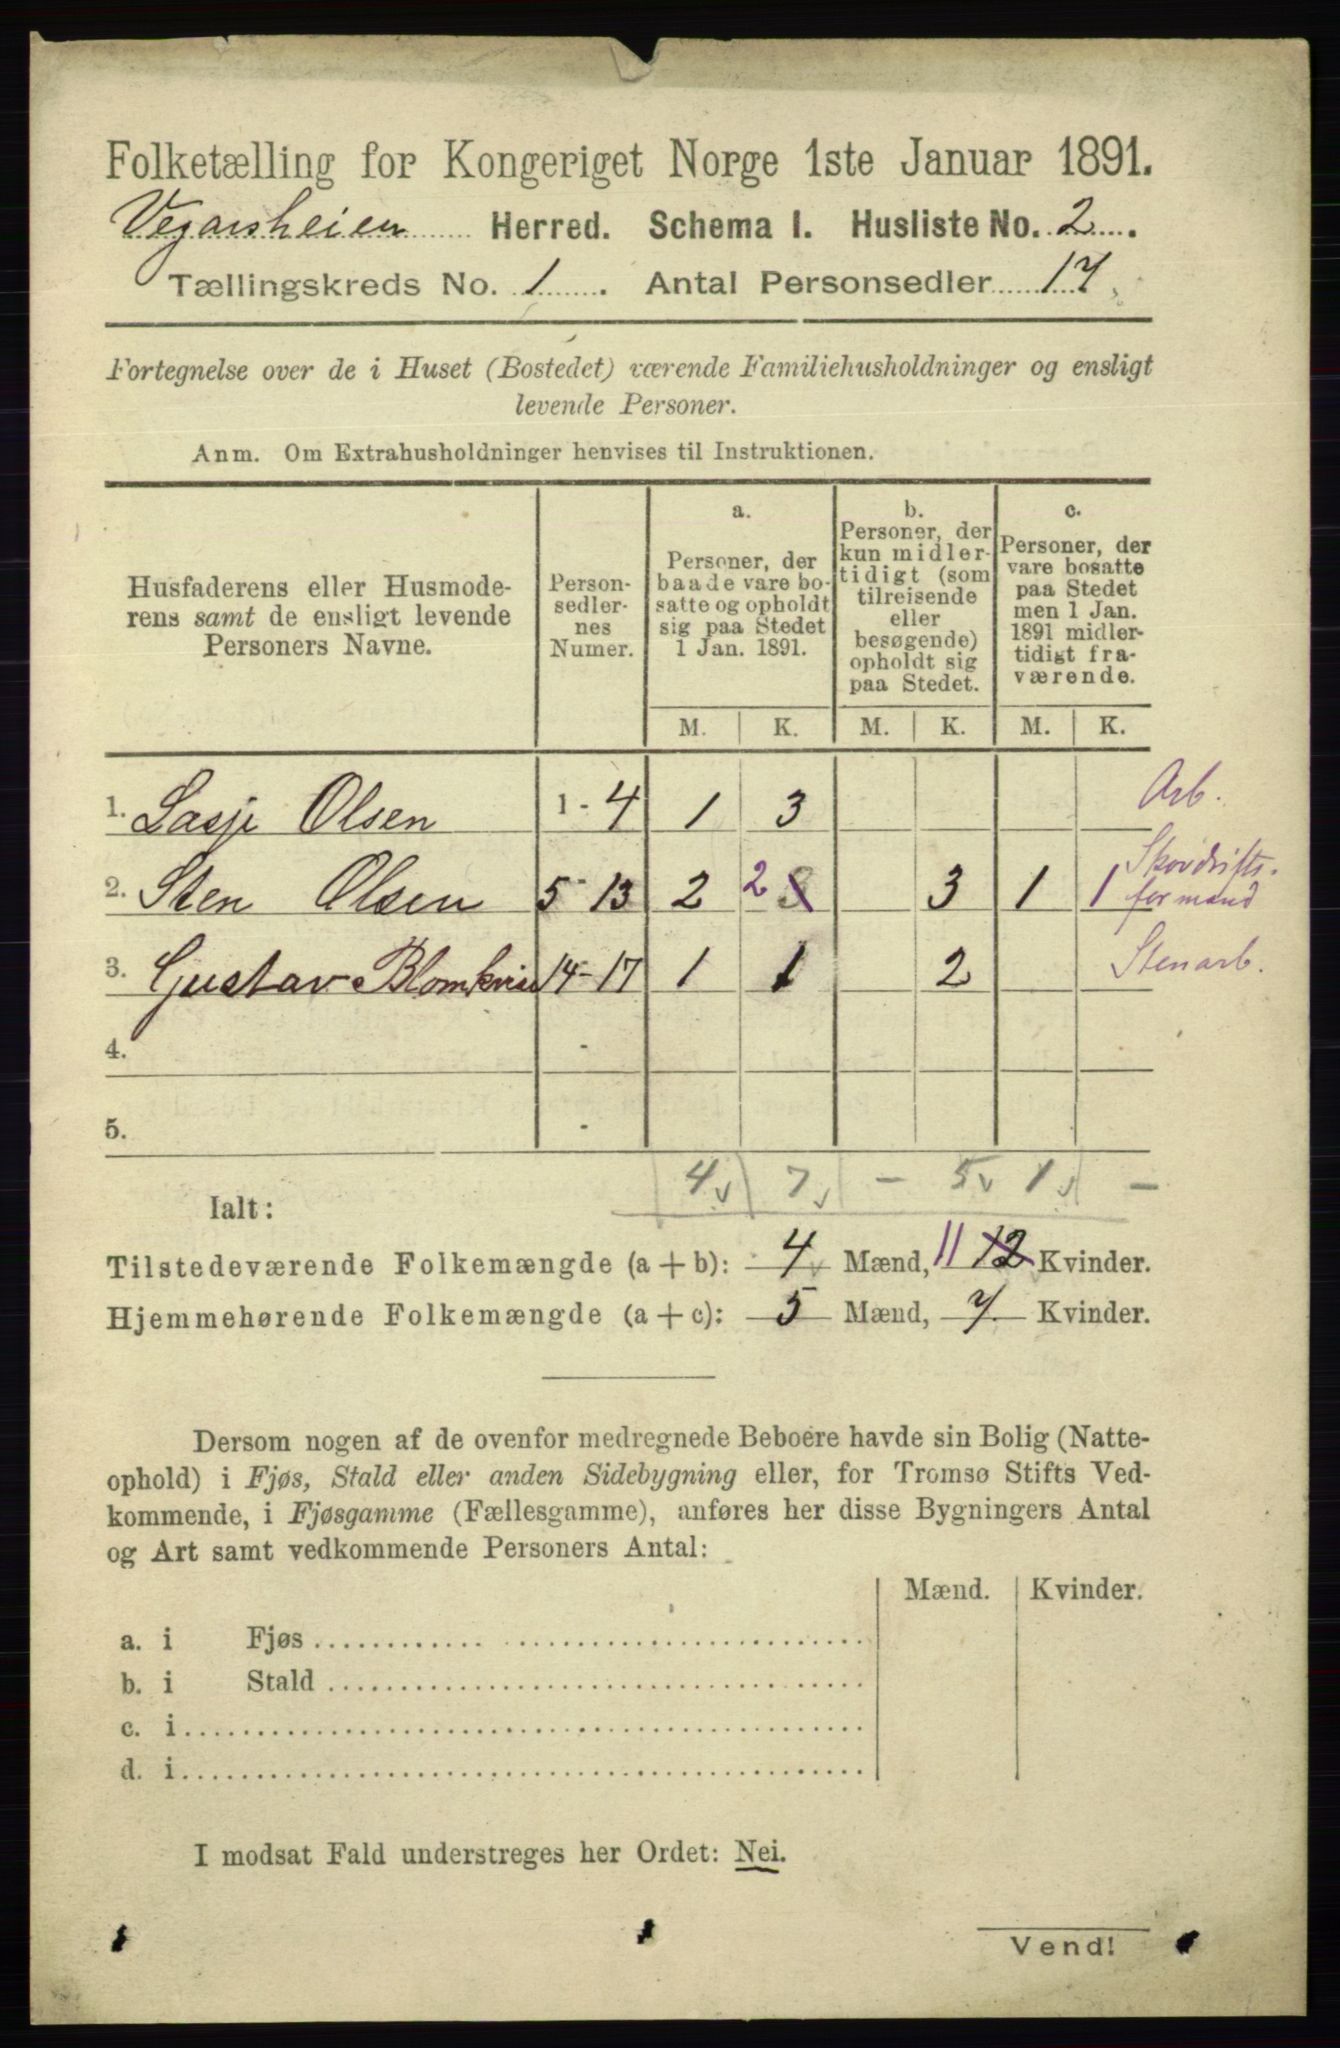 Folketælling for Kongeriget Norge 1ste Januar 1891.
Vegarsheien Herred. Schema I. Husliste No. 2.
Tællingskreds No. 1. Antal Personsedler 17.
Fortegnelse over de i Huset (Bostedet) værende Familiehusholdninger og ensligt
levende Personer.
Anm. Om Extrahusholdninger henvises til Instruktionen.
Husfaderens eller Husmode-
rens samt de ensligt levende
Personers Navne.
Person-
sedler-
nes
Numer.
a.
Personer, der
baade vare bo-
satte og opholdt
sig paa Stedet
1 Jan. 1891.
b.
Personer, der
kun midler-
tidigt (som
tilreisende
eller
besøgende)
opholdt sig
paa Stedet.
c.
Personer, der
vare bosatte
paa Stedet
men 1 Jan.
1891 midler-
tidigt fra-
værende.
M. K. M. K. M. K.
1. Olsen 1 - 4 1 3 Arb.
2. Sten Olsen 5 - 13 2 2 3 3 1 1 Skovdrifts-
formand
3. Gustav 14 - 17 1 1 2 Stenarb.
4. -
5. -
Ialt: 4 7 - 5 1 -
Tilstedeværende Folkemængde (a + b): 4 Mænd, 11 12 Kvinder.
Hjemmehørende Folkemængde (a + c): 5 Mænd, 7 Kvinder.
Dersom nogen af de ovenfor medregnede Beboere havde sin Bolig (Natte-
ophold) i Fjøs, Stald eller anden Sidebygning eller, for Tromsø Stifts Ved-
kommende, i Fjøsgamme (Fællesgamme), anføres her disse Bygningers Antal
og Art samt vedkommende Personers Antal:
Mænd. Kvinder.
a. i Fjøs
b. i Stald
c. i
d. i
I modsat Fald understreges her Ordet: Nei.
Vend!